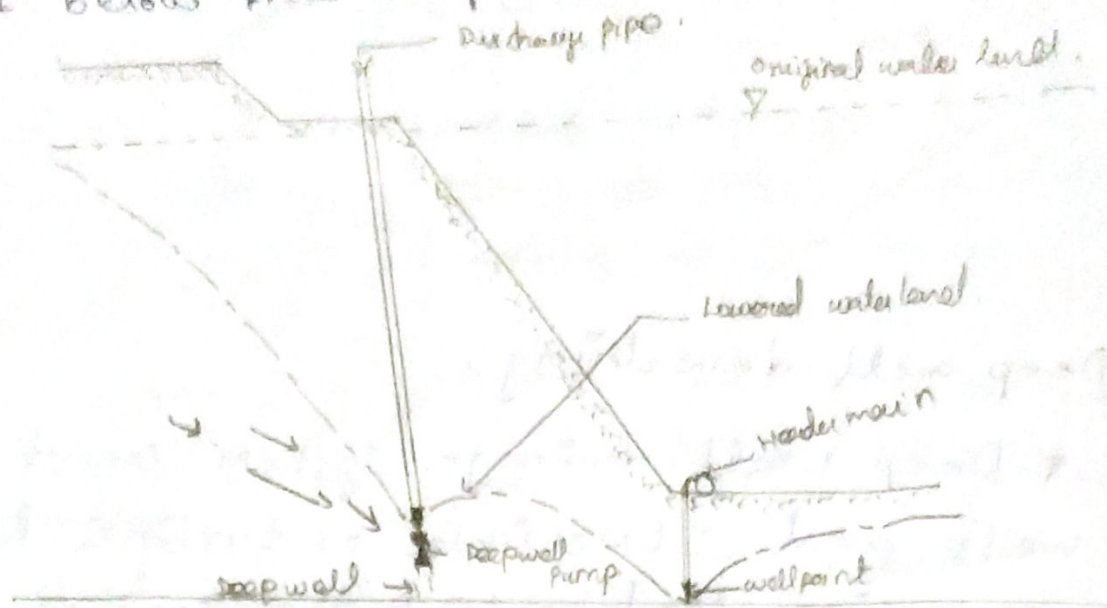 below
Discharge pipe.
Original water level.
Lowered water level
Header main
Deepwell pump
Deepwell
wellpoint